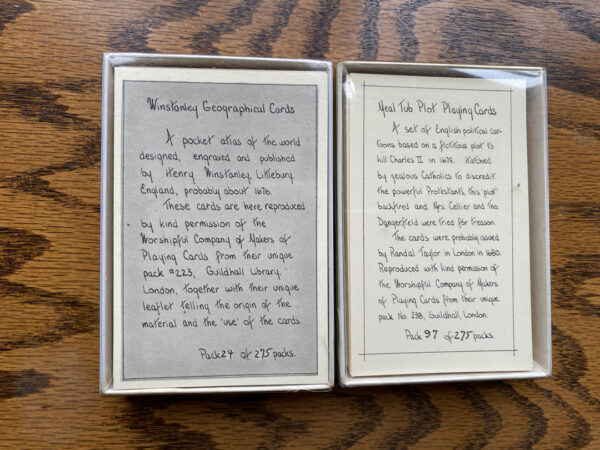 Winstanley Geographical Cards
A pocket atlas of the world
designed, engraved and published
by Henry Winstanley Littlebury,
England, probably about 1676.
These cards are here reproduced
by kind permission of the
Worshipful Company of Makers of
Playing Cards from their unique
pack #223, Guildhall Library,
London, together with their unique
leaflet telling the origin of the
material and the 'use' of the cards.
Pack 24 of 275 packs.
Meal Tub Plot Playing Cards
A set of English political car-
toons based on a fictitious plot to
kill Charles II in 1679. Hatched
by zealous Catholics to discredit
the powerful Protestants, this plot
backfired and Mrs. Cellier and Tho.
Dangerfield were tried for treason.
The cards were probably issued
by Randal Taylor in London in 1680.
Reproduced with kind permission of
the Worshipful Company of Makers
of Playing Cards from their unique
pack No. 238, Guildhall, London.
Pack 97 of 275 packs.